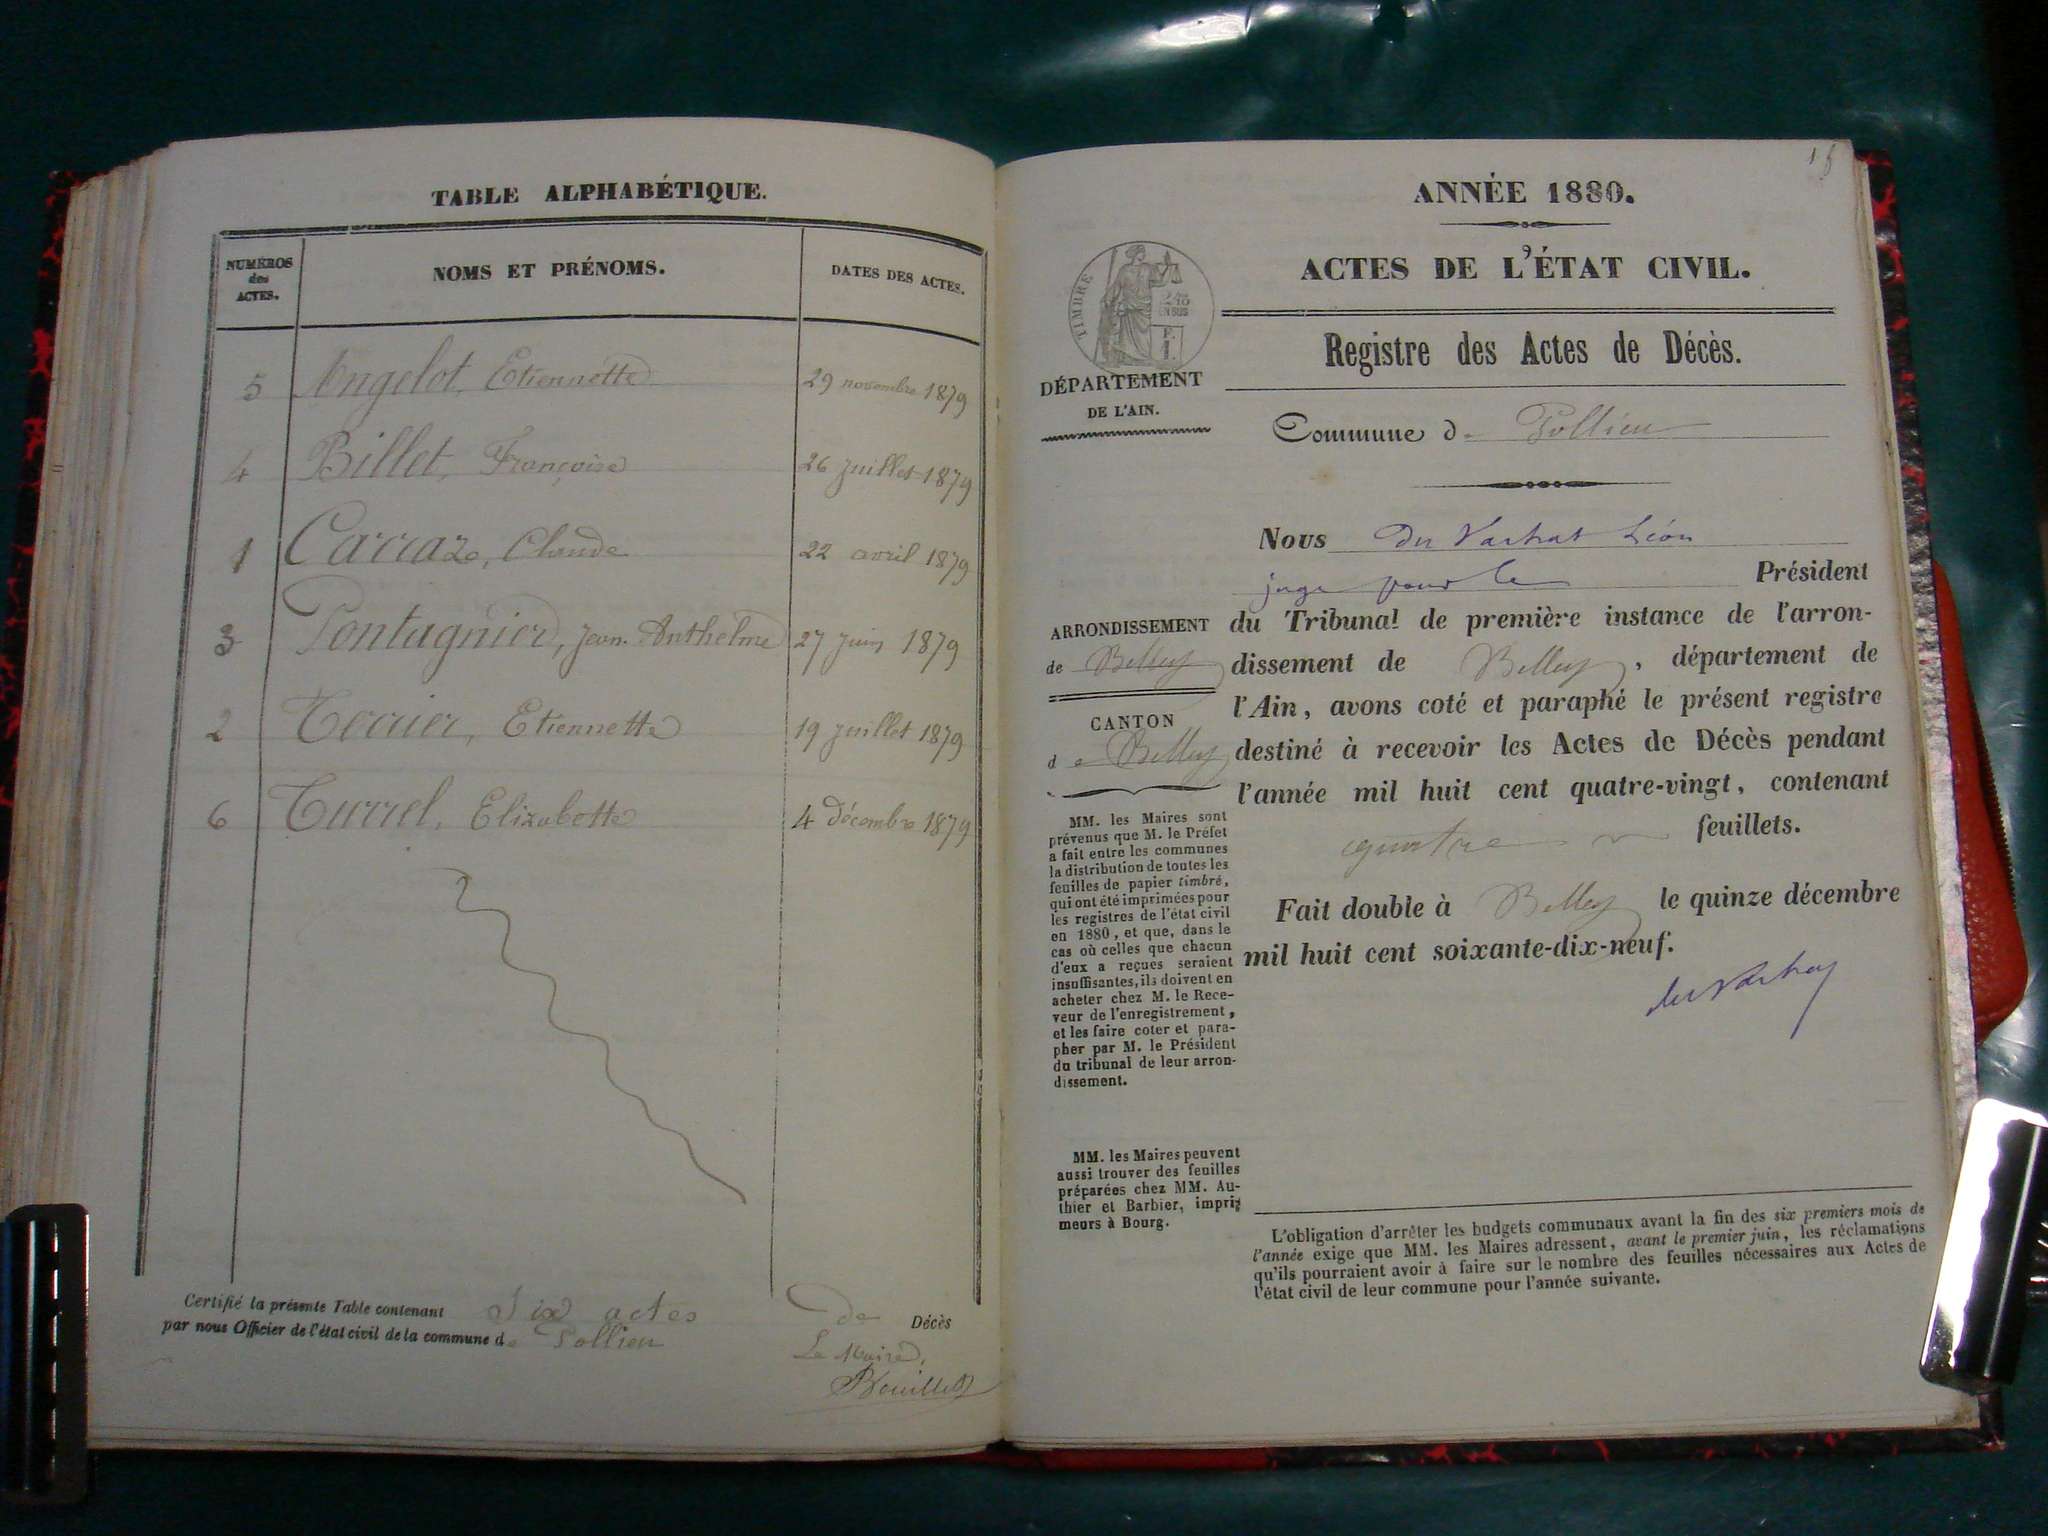 TABLE ALPHABÉTIQUE.
NUMÉROS des ACTES.
NOMS ET PRÉNOMS.
DATES DES ACTES.
5 Angelot, Etiennette 29 novembre 1879
4 Billet, Françoise 26 juillet 1879
1 Carraz, Claude 22 avril 1879
3 Pontagnier, Jean-Anthelme 27 juin 1879
2 Terrier, Etiennette 19 juillet 1879
6 Turrel, Elizabette 4 décembre 1879
Certifié la présente Table contenant Six actes de Décès
par nous Officier de l'état civil de la commune de Pollieu
Le Maire,
Bouillet
ANNÉE 1880.
ACTES DE L'ÉTAT CIVIL.
Registre des Actes de Décès.
TIMBRE
2/10
EN SUS
DÉPARTEMENT
DE L'AIN.
Commune de Pollieu
Nous Léon
juge pour le Président
du Tribunal de première instance de l'arron-
dissement de Belley, département de
l'Ain, avons coté et paraphé le présent registre
destiné à recevoir les Actes de Décès pendant
l'année mil huit cent quatre-vingt, contenant
quatre feuillets.
Fait double à Belley le quinze décembre
mil huit cent soixante-dix-neuf.
ARRONDISSEMENT
de Belley
CANTON
de Belley
MM. les Maires sont
prévenus que M. le Préfet
a fait entre les communes
la distribution de toutes les
feuilles de papier timbré,
qui ont été imprimées pour
les registres de l'état civil
en 1880, et que, dans le
cas où celles que chacun
d'eux a reçues seraient
insuffisantes, ils doivent en
acheter chez M. le Rece-
veur de l'enregistrement,
et les faire coter et para-
pher par M. le Président
du tribunal de leur arron-
dissement.
MM. les Maires peuvent
aussi trouver des feuilles
préparées chez MM. Au-
thier et Barbier, impri-
meurs à Bourg.
L'obligation d'arrêter les budgets communaux avant la fin des six premiers mois de
l'année exige que MM. les Maires adressent, avant le premier juin, les réclamations
qu'ils pourraient avoir à faire sur le nombre des feuilles nécessaires aux Actes de
l'état civil de leur commune pour l'année suivante.